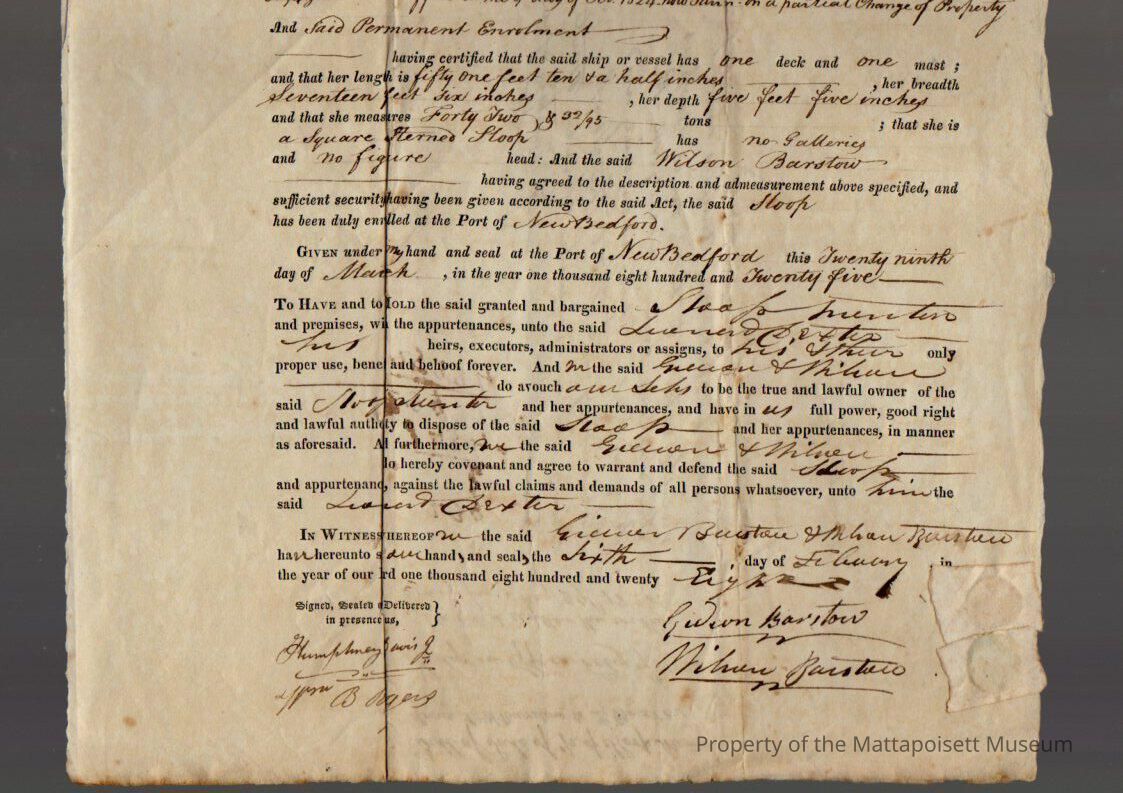 on a partial Change of Property
And Said Permanent Enrolment
having certified that the said ship or vessel has one deck and one mast ;
and that her length is fifty one feet ten & a half inches , her breadth
Seventeen feet Six inches , her depth five feet five inches
and that she measures Forty Two & 32/95 tons ; that she is
a Square Sterned Sloop has no Galleries
and no figure head : And the said Wilson Barstow
having agreed to the description and admeasurement above specified, and
sufficient security having been given according to the said Act, the said Sloop
has been duly enrolled at the Port of New Bedford.
GIVEN under my hand and seal at the Port of New Bedford this Twenty ninth
day of March , in the year one thousand eight hundred and Twenty five
TO HAVE and to HOLD the said granted and bargained Sloop
and premises, with the appurtenances, unto the said Leonard Dexter
his heirs, executors, administrators or assigns, to his & their only
proper use, benefit and behoof forever. And we the said Gideon & Wilson
do avouch our selvs to be the true and lawful owner of the
said Sloop and her appurtenances, and have in us full power, good right
and lawful authority to dispose of the said Sloop and her appurtenances, in manner
as aforesaid. And furthermore, we the said Gideon & Wilson
do hereby covenant and agree to warrant and defend the said Sloop
and appurtenances, against the lawful claims and demands of all persons whatsoever, unto him the
said Leonard Dexter
IN WITNESS WHEREOF we the said Gideon Barstow & Wilson Barstow
have hereunto set our hands and seals the Sixth day of February , in
the year of our Lord one thousand eight hundred and twenty Eight
Signed, Sealed and Delivered }
in presence of us,
Gideon Barstow
Humphrey Davis Jr
Wilson Barstow
B Rogers
Property of the Mattapoisett Museum